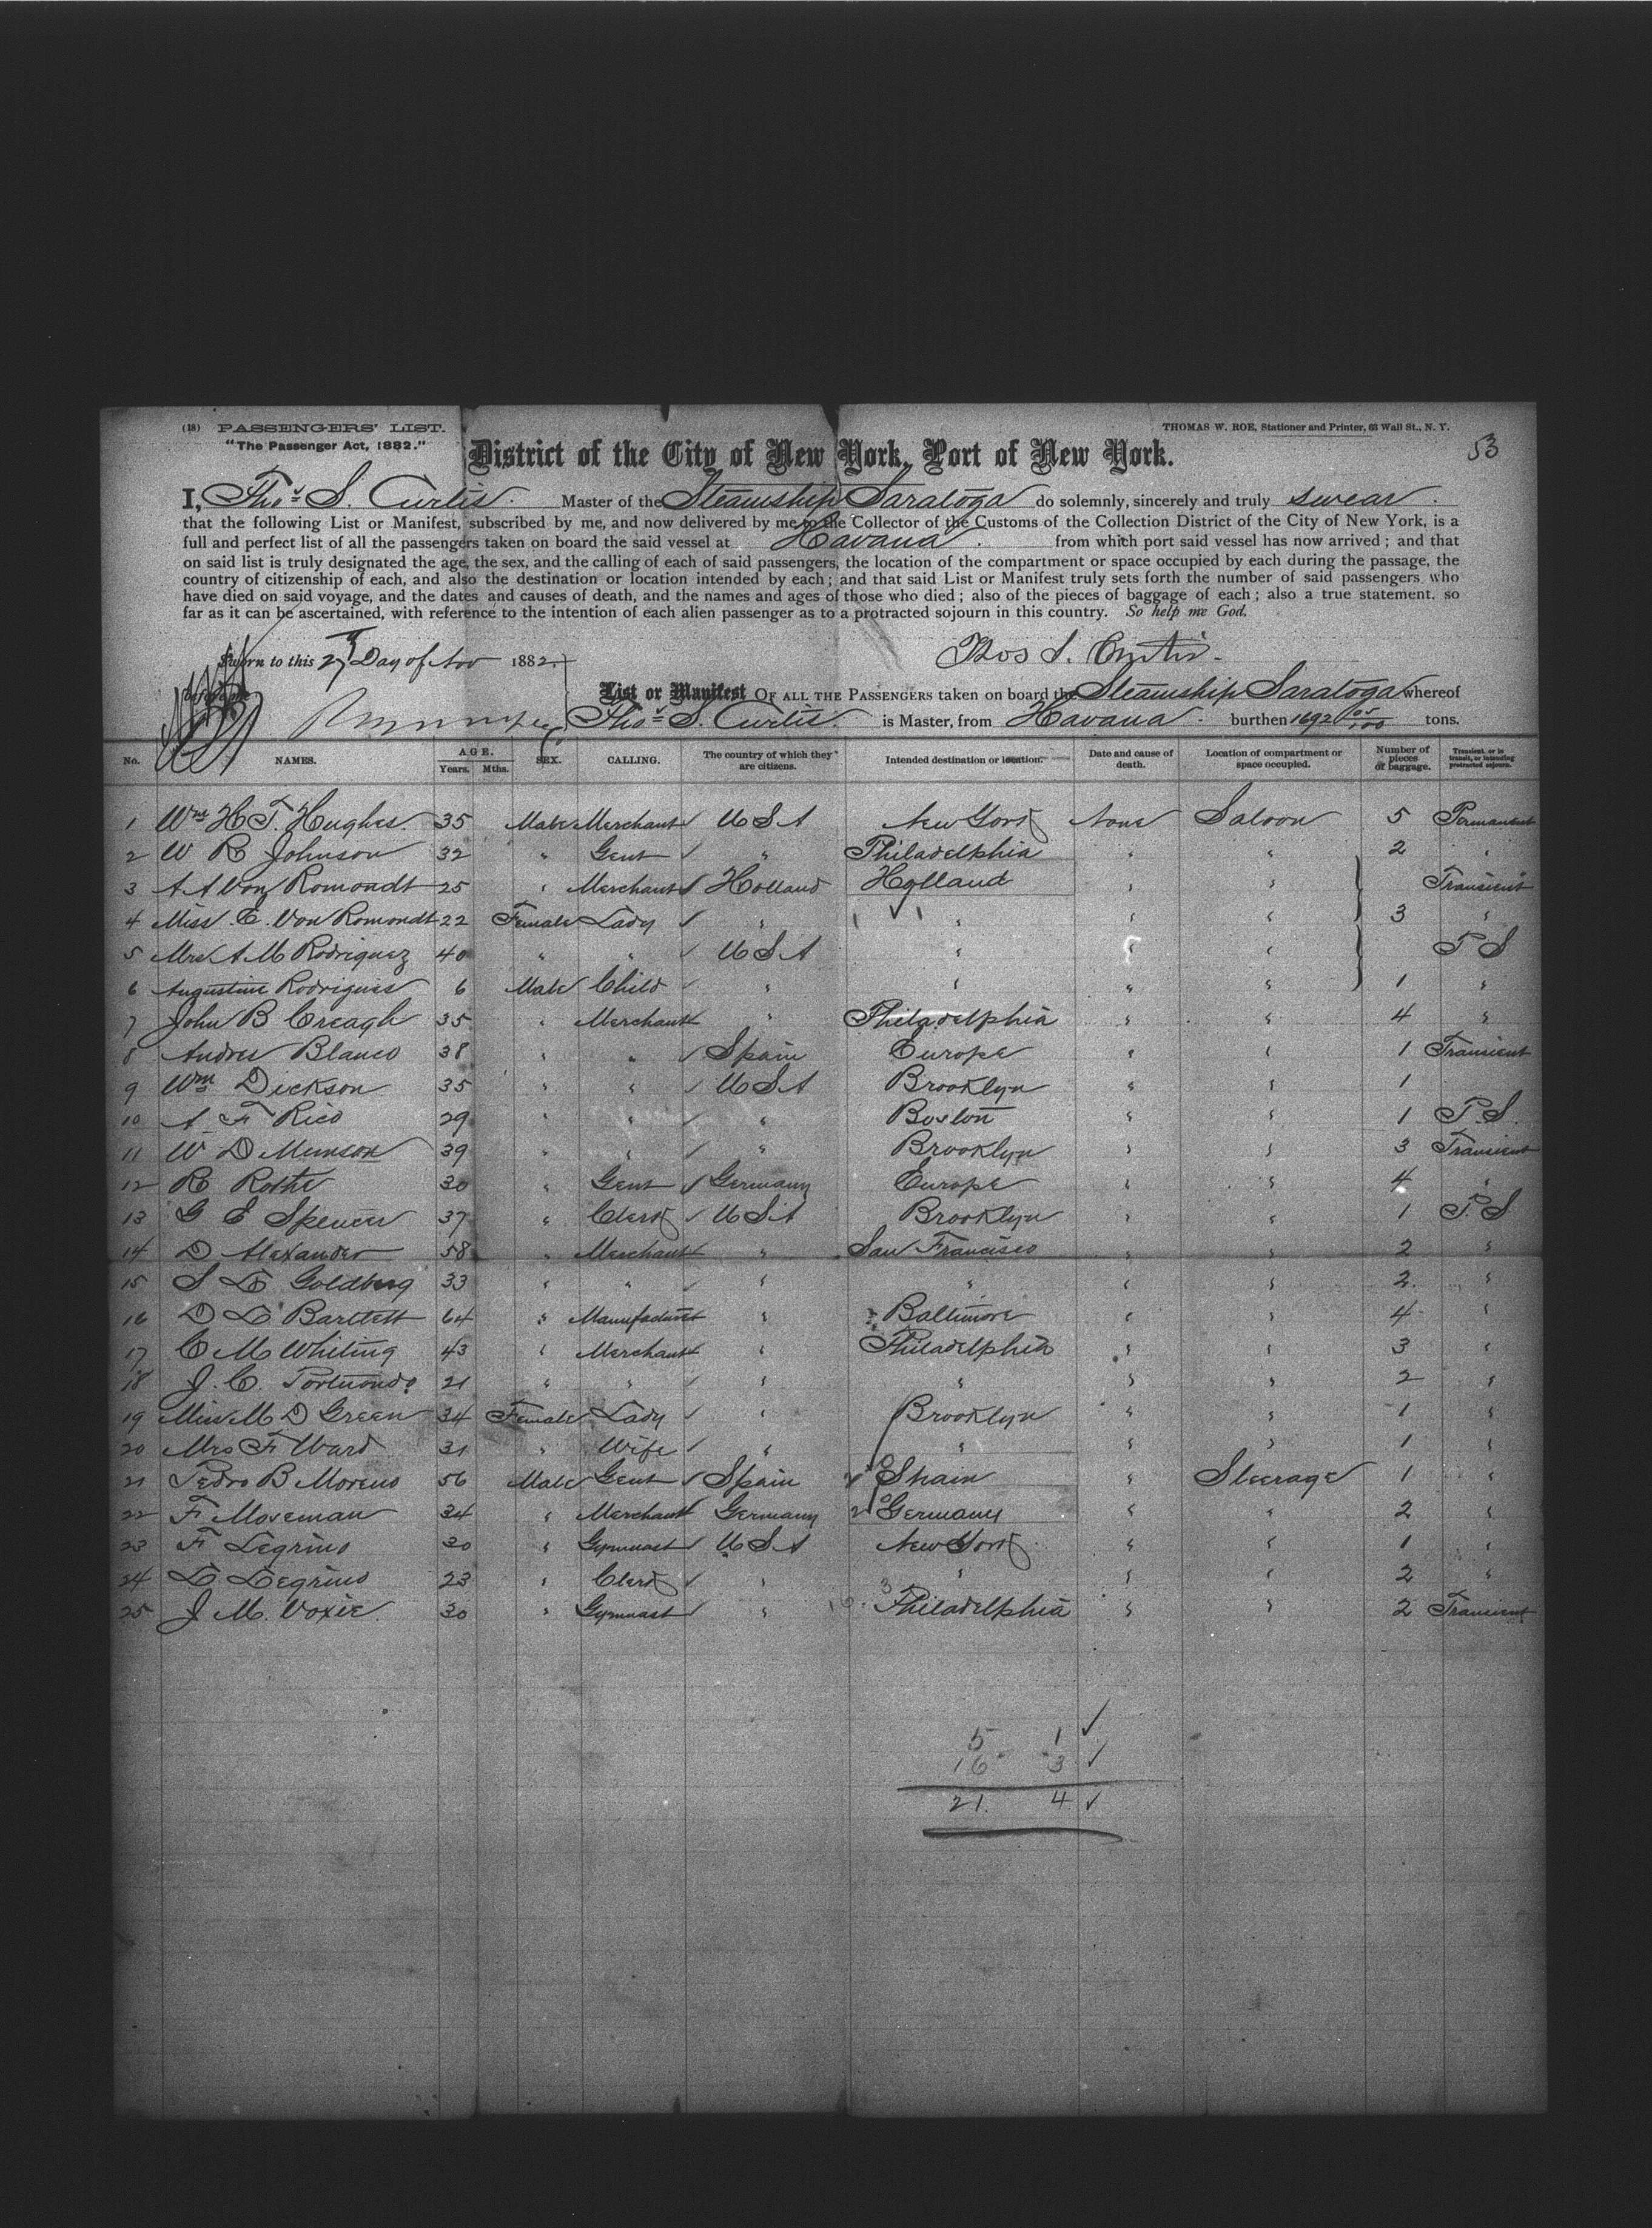 (18) PASSENGERS' LIST.
"The Passenger Act, 1882."
THOMAS W. ROE, Stationer and Printer, 63 Wall St., N. Y.
53
District of the City of New York, Port of New York.
I, Thos S. Curtis. Master of the Steamship Saratoga do solemnly, sincerely and truly swear.
that the following List or Manifest, subscribed by me, and now delivered by me to the Collector of the Customs of the Collection District of the City of New York, is a
full and perfect list of all the passengers taken on board the said vessel at Havana. from which port said vessel has now arrived; and that
on said list is truly designated the age, the sex, and the calling of each of said passengers, the location of the compartment or space occupied by each during the passage, the
country of citizenship of each, and also the destination or location intended by each; and that said List or Manifest truly sets forth the number of said passengers who
have died on said voyage, and the dates and causes of death, and the names and ages of those who died; also of the pieces of baggage of each; also a true statement, so
far as it can be ascertained, with reference to the intention of each alien passenger as to a protracted sojourn in this country. So help me God.
Sworn to this 27 Day of Nov 1882.
Thos S. Curtis.
before me
List or Manifest OF ALL THE PASSENGERS taken on board the Steamship Saratoga whereof
Thos S. Curtis. is Master, from Havana. burthen 1692 05/100 tons.
No. NAMES. AGE. Years. Mths. SEX. CALLING. The country of which they are citizens. Intended destination or location. Date and cause of death. Location of compartment or space occupied. Number of pieces of baggage. Transient, or in transit, or intending protracted sojourn.
1 Wm H. T. Hughes. 35 Male Merchant U S A New York None Saloon 5 Permanent
2 W R Johnson 32 " Gent " Philadelphia " " 2 "
3 A A Von Romondt 25 " Merchant Holland Holland " " Transient
4 Miss C. Von Romondt 22 Female Lady " " " " 3 "
5 Mrs A M Rodriquez 40 " " U S A " " " P S
6 Augustine Rodriguez 6 Male Child " " " " 1 "
7 John B Creagh 35 " Merchant " Philadelphia " " 4 "
8 Andres Blanco 38 " " Spain Europe " " 1 Transient
9 Wm Dickson 35 " " U S A Brooklyn " " 1
10 A F Rico 29 " " " Boston " " 1 P. S.
11 W D Munson 39 " " " Brooklyn " " 3 Transient
12 R Rothe 30 " Gent Germany Europe " " 4 "
13 G E Spencer 37 " Clerk U S A Brooklyn " " 1 P. S
14 D Alexander 58 " Merchant " San Francisco " " 2 "
15 S L Goldberg 33 " " " " " " 2. "
16 D L Bartlett 64 " Manufacturer " Baltimore " " 4 "
17 C M Whiting 43 " Merchant " Philadelphia " " 3 "
18 J. C. Portuondo 21 " " " " " " 2 "
19 Miss M D Green 34 Female Lady " Brooklyn " " 1 "
20 Mrs F Ward 31 " Wife " " " " 1 "
21 Pedro B Moreno 56 Male Gent Spain Spain " Steerage 1 "
22 F Moseman 34 " Merchant Germany Germany " " 2 "
23 F Legrino 30 " Gymnast U S A New York " " 1 "
24 L Legrino 23 " Clerk " " " " 2 "
25 J. M. Voxie. 30 " Gymnast " Philadelphia " " 2 Transient
5 1 ✓
16 3 ✓
21. 4 ✓